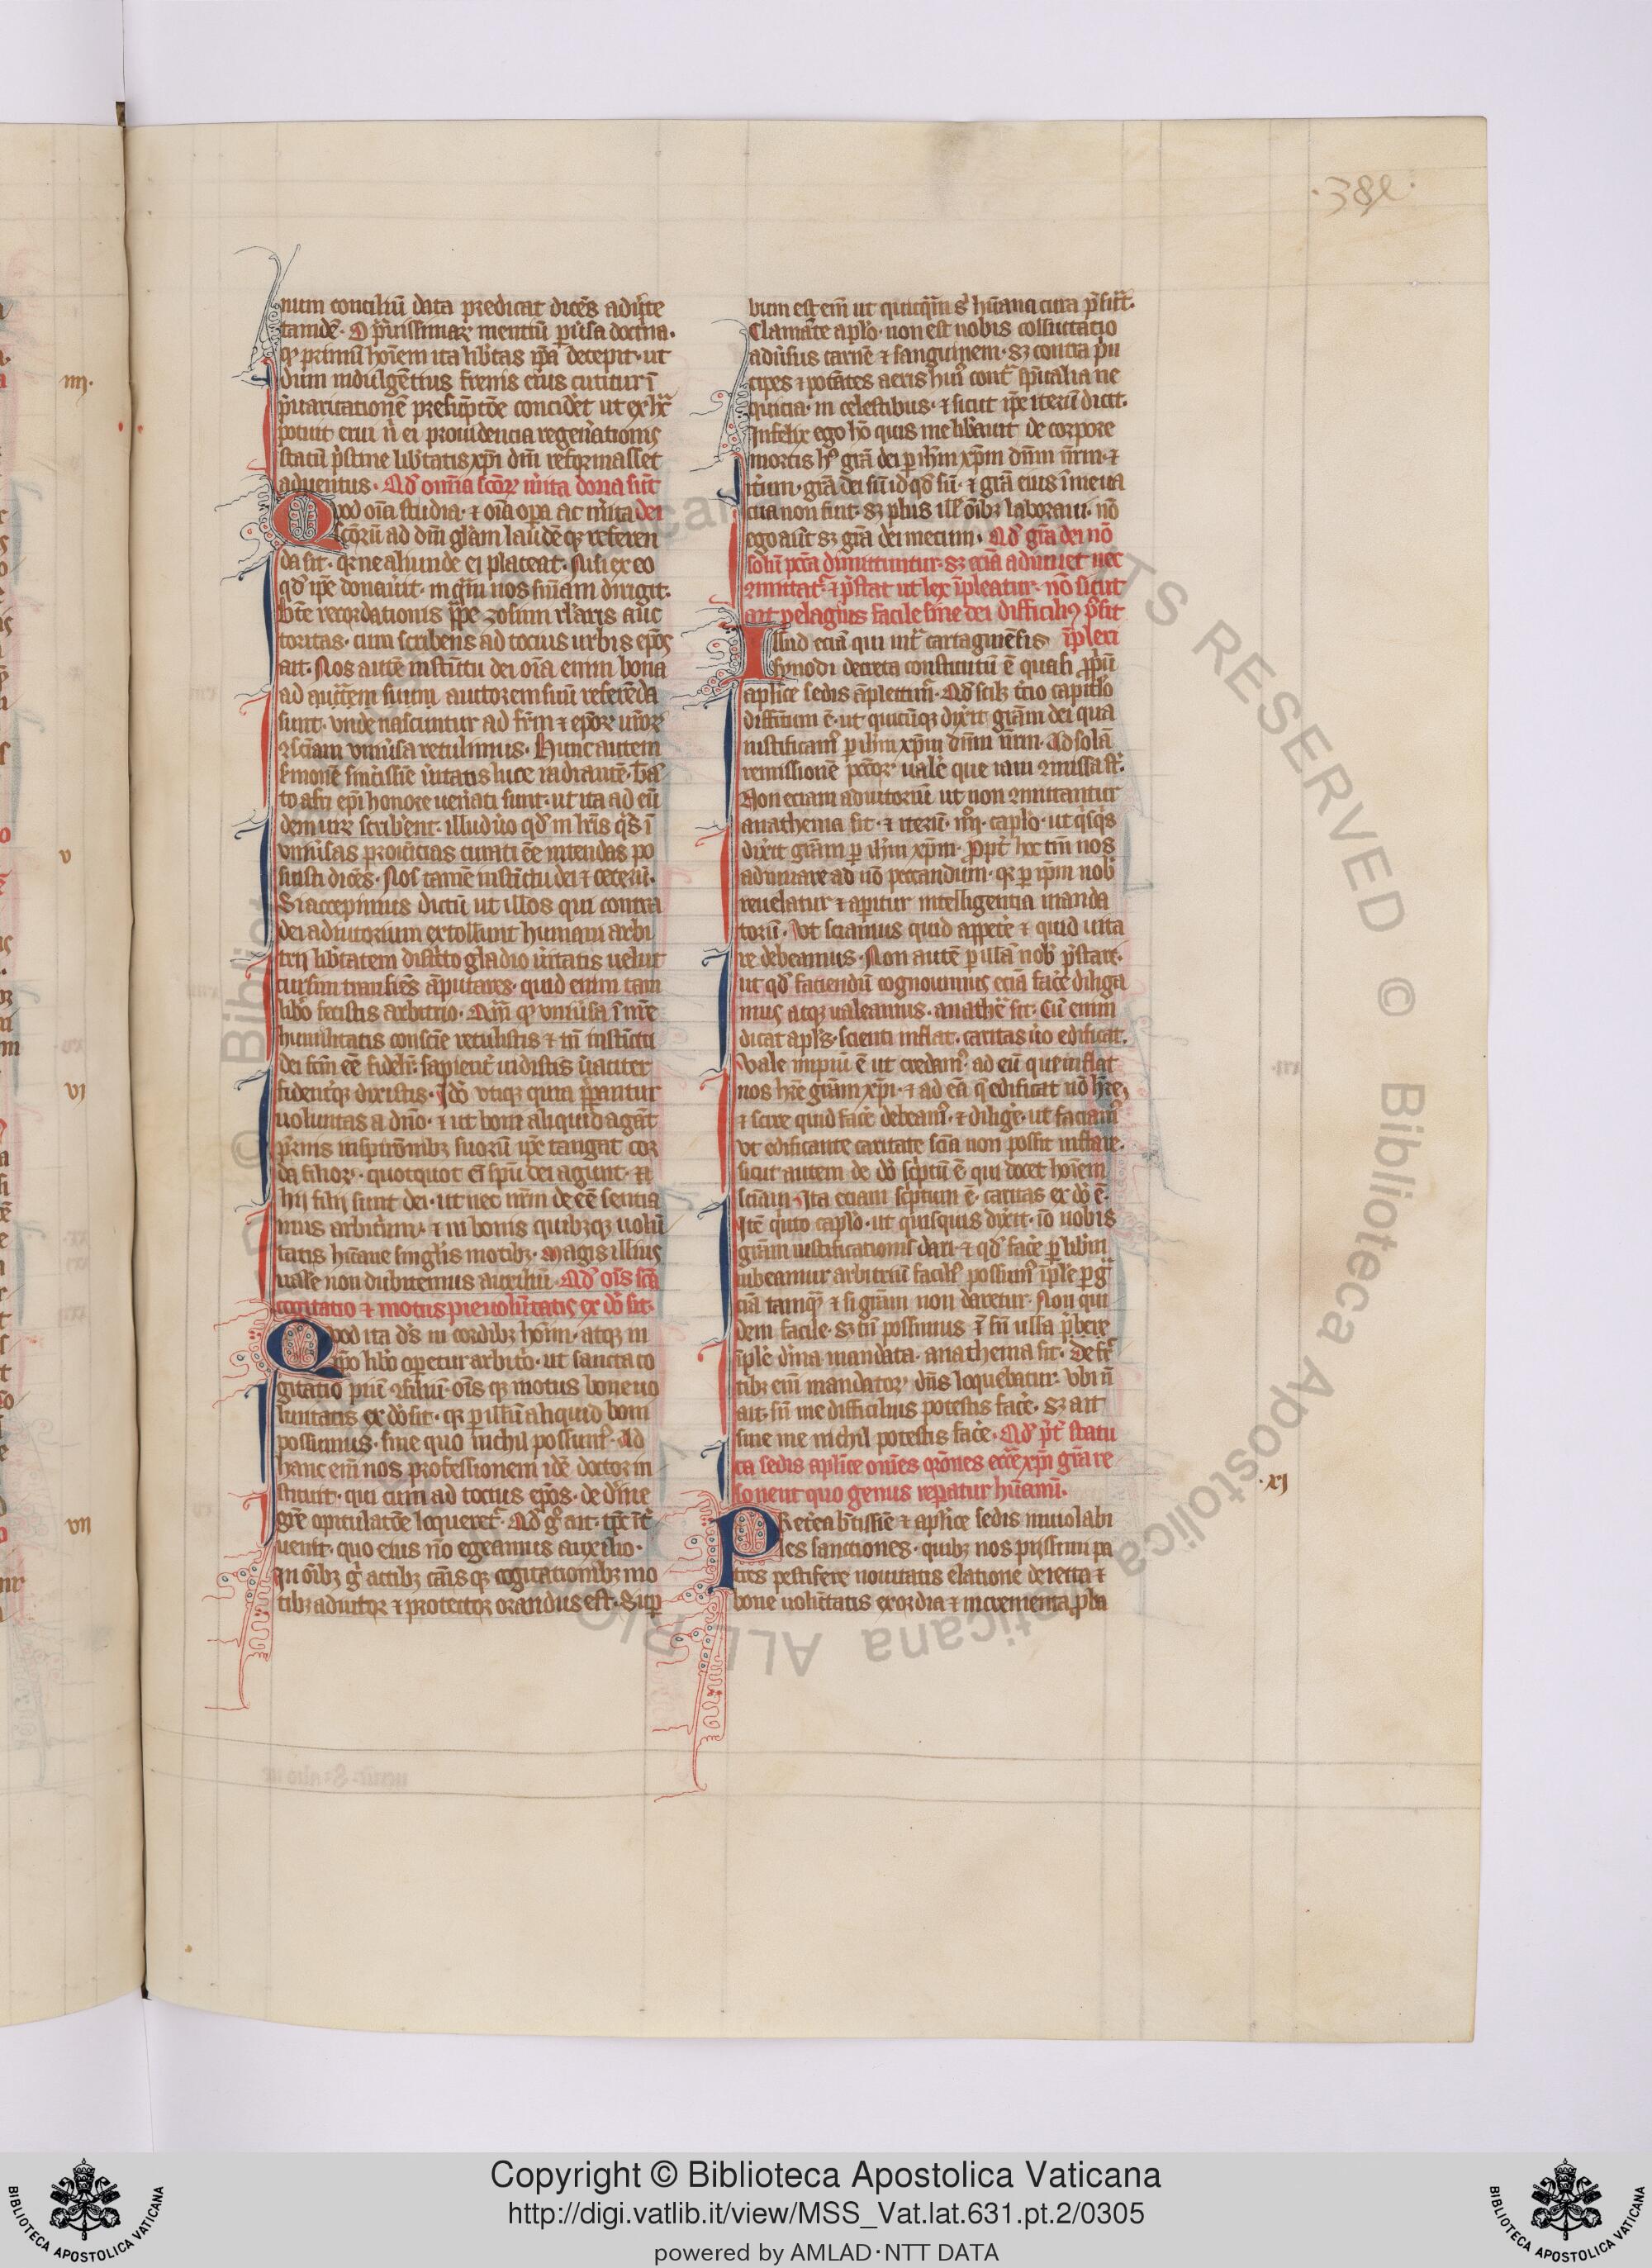 ·382·
num conciliū data predicat dicēs adip̄te
tamdē· O p̄uissimaꝝ mentiū ꝑuersa doctrina·
q̄ primū hoīem ita lib̄tas ip̄a decepit· ut
dum indulgētius frenis eius cutitur ī
p̄uaricationē presūptōe concid̄et ut ex hac
potuit erui n̄ ei prouidencia regen̄ationis
statū p̄stine lib̄tatis xp̄i dn̄i reformasset
aduentus· Qd̄ omīa sc̄oꝝ merita dona sūt
Quod oīa studia· ⁊ oīa oꝑa ac merita dei
sc̄oꝝ ad dei glām laudē q̄ referen
da sit· q̄ ne aliunde ei placeat· Nisi ex eo
qd̄ ip̄e donauit· in q̄m nos suīam dirigit·
b̄te recordationis pp̄e zosimi rl̄aris auc
toritas· cum scribens ad tocius urbis ep̄os
ait· Nos autē instīctu dei oīa enim bona
ad auct̄em suum autorem suū referēda
sunt· vnde nascuntur ad fr̄m ⁊ ep̄oꝝ nr̄oꝝ
ꝯsciam vniu̓sa retulimus· Hunc autem
s̄monē sinc̄issīe u̓itatis luce radiantē· tā
to afri ep̄i honore uen̄ati sunt· ut ita ad eū
dem urꝝ scrib̄ent· illud u̓o qd̄ in lr̄is q̄s ī
vniu̓sas prouīcias curati ēe mittendas po
suisti dicēs· Nos tamē instīctu dei ⁊ ceterū·
Si accepimus dictū ut illos qui contra
dei adiutorium extollunt humani arbi
trii lib̄tatem districto gladio u̓itatis uelut
cursim transiēs āputares· quid enim tam
lib̄o fecistis arbitrio· Qm̄ q̄ vniu̓sa ī nr̄e
humilitatis consciē retulistis ⁊ tn̄ instīctu
dei fcm̄ ēe fidelit̄ sapient̄ uidistis u̓aciter
fident̄q̄ dixistis· Iō vtiq̄ quia p̄parantur
uoluntas a dn̄o· ⁊ ut boni aliquid agāt
p̄rnis inspirōnibꝫ suorū ip̄e tangat cor
da filioꝝ· quotquot eī sp̄u dei agunt̄· ⁊
hii filii sunt dei· ut nec nr̄m deēe sentia
mus arbitrium· ⁊ in bonis quibꝫq̄ uolū
tatis hūane singlis motibꝫ· Magis illius
uale non dubitemus auxiliū· Qd̄ oīs sc̄a
cogitatio ⁊ motus pie uolūtatis ex dō sit·
Quod ita d̄s in cordibꝫ hoīm· atq̄ in
ip̄o lib̄o oꝑetur arbit̄o· ut sancta co
gitatio piū ꝯsiliū· oīs q̄ motus bone uo
lūtatis ex dō sit· q̄ ꝑ illū aliquid boni
possumus· sine quo nichil possum̄· Ad
hanc em̄ nos professionem idē doctor in
stituit· qui cum ad tocius ep̄os· de dīne
grē opitulatōe loqueret̄· Qd̄ ḡ ait· tp̄s īt̄
uenit· quo eius nō egeamus auxilio·
In oībꝫ ḡ actibꝫ cāis q̄ cogitationibꝫ mo
tibꝫ adiutor ⁊ protector orandus est· Suꝑ
bum est em̄ ut quicq̄m s̄ hūana cura p̄sūt·
Clamāte aplō· non est nobis colluctatio
adūsus carnē ⁊ sanguinem· sꝫ contra p̄n
cipes ⁊ potates aeris hui᷒ cont̄ sp̄italia ne
quicia· in celestibus· ⁊ sicut ip̄e iterū dicit·
Infelix ego hō quis me lib̄auit de corpore
mortis h᷒ grā dei ꝑ ih̄m xp̄m dn̄m nr̄m· ⁊
it̄um· grā dei sū id qd̄ sū· ⁊ grā eius ī me ua
cua non fuit· sꝫ plus ill̄ oībꝫ laboraui· nō
ego aūt sꝫ grā dei mecum· Qd̄ grā dei nō
solū pcc̄a dimittuntur· sꝫ eciā adiuuet nec
ꝯmittat̄ ⁊ p̄stat ut lex īpleatur· nō sicut
ait pelagius facile sine dei difficili᷒ p̄sit
īpleri
Illud eciā qui int̄ cartaginēsis
synodi decreta constitutū ē quasi ꝓpriū
aplice sedis āplectim̄· Qd̄ scilꝫ t̄cio capitlō
diffinitum ē· ut quicūq̄ dixit grām dei qua
iustificam̄ ꝑ ih̄m xp̄m dn̄m nr̄m· Ad solā
remissionē pcc̄oꝝ ualē que iam ꝯmissa st̄·
Non eciam adiutoriū ut non ꝯmittantur
anathema sit· ⁊ iterū· iiij· caplō· ut q̄sq̄s
dixit grām ꝑ ih̄m xp̄m· ꝓpt̄ hec tm̄ nos
adiuuare ad nō peccandum· q̄ ꝑ ip̄m nob̄
reuelatur ⁊ aꝑitur intelligentia manda
torū· Vt sciamus quid appetē ⁊ quid uita
re debeamus· Non autē ꝑ illā nob̄ p̄stare·
ut qd̄ faciendū cognouimus eciā facē diliga
mus atq̄ ualeamus· anathē sit· Cū enim
dicat apl̄s· scienti inflat· caritas u̓o edificat·
Vale impiū ē ut credam̄· ad eū que inflat
nos hr̄e grām xp̄i· ⁊ ad eā q̄ edificat nō hr̄e,
⁊ scire quid facē debeam̄· ⁊ diligē· ut faciam̄
vt edificante caritate scīa non possit inflare·
sicut autem de dō sc̄ptū ē qui docet hoīem
scīam· Ita eciam sc̄ptum ē· caritas ex dō ē·
Itē q̄nto caplō· ut quisquis dixit· iō nobis
grām iustificationis dari· ⁊ qd̄ facē ꝑ lib̄m
iubeamur arbitriū facili᷒ possum̄ īplē ꝑ ḡ
ciā tamq̄ ⁊ si grām non daretur· Non qui
dem facile· sꝫ tn̄ possimus ⁊ sn̄ illa p̄bere
īplē dīna mandata· anathema sit· De fc̄
tibꝫ em̄ mandatoꝝ dn̄s loquebatur· vbi n̄
ait· sn̄ me difficilius potestis facē· sꝫ ait
sine me nichil potestis facē· Qd̄ p̄t statu
ta sedis aplice om̄es orōnes ecc̄e xp̄i grā re
sonent quo genus reꝑatur hūanū·
Pret̄ea b̄tissīe ⁊ aplice sedis inuiolabi
les sanctiones· quibꝫ nos piissimi pa
tres pestifere nouitatis elatione deiecta ⁊
bone uolūtatis exordia ⁊ incrementa ꝓba
iiij·
v
vi
vii
·xi
Copyright © Biblioteca Apostolica Vaticana
http://digi.vatlib.it/view/MSS_Vat.lat.631.pt.2/0305
powered by AMLAD·NTT DATA
BIBLIOTECA APOSTOLICA VATICANA
BIBLIOTECA APOSTOLICA VATICANA